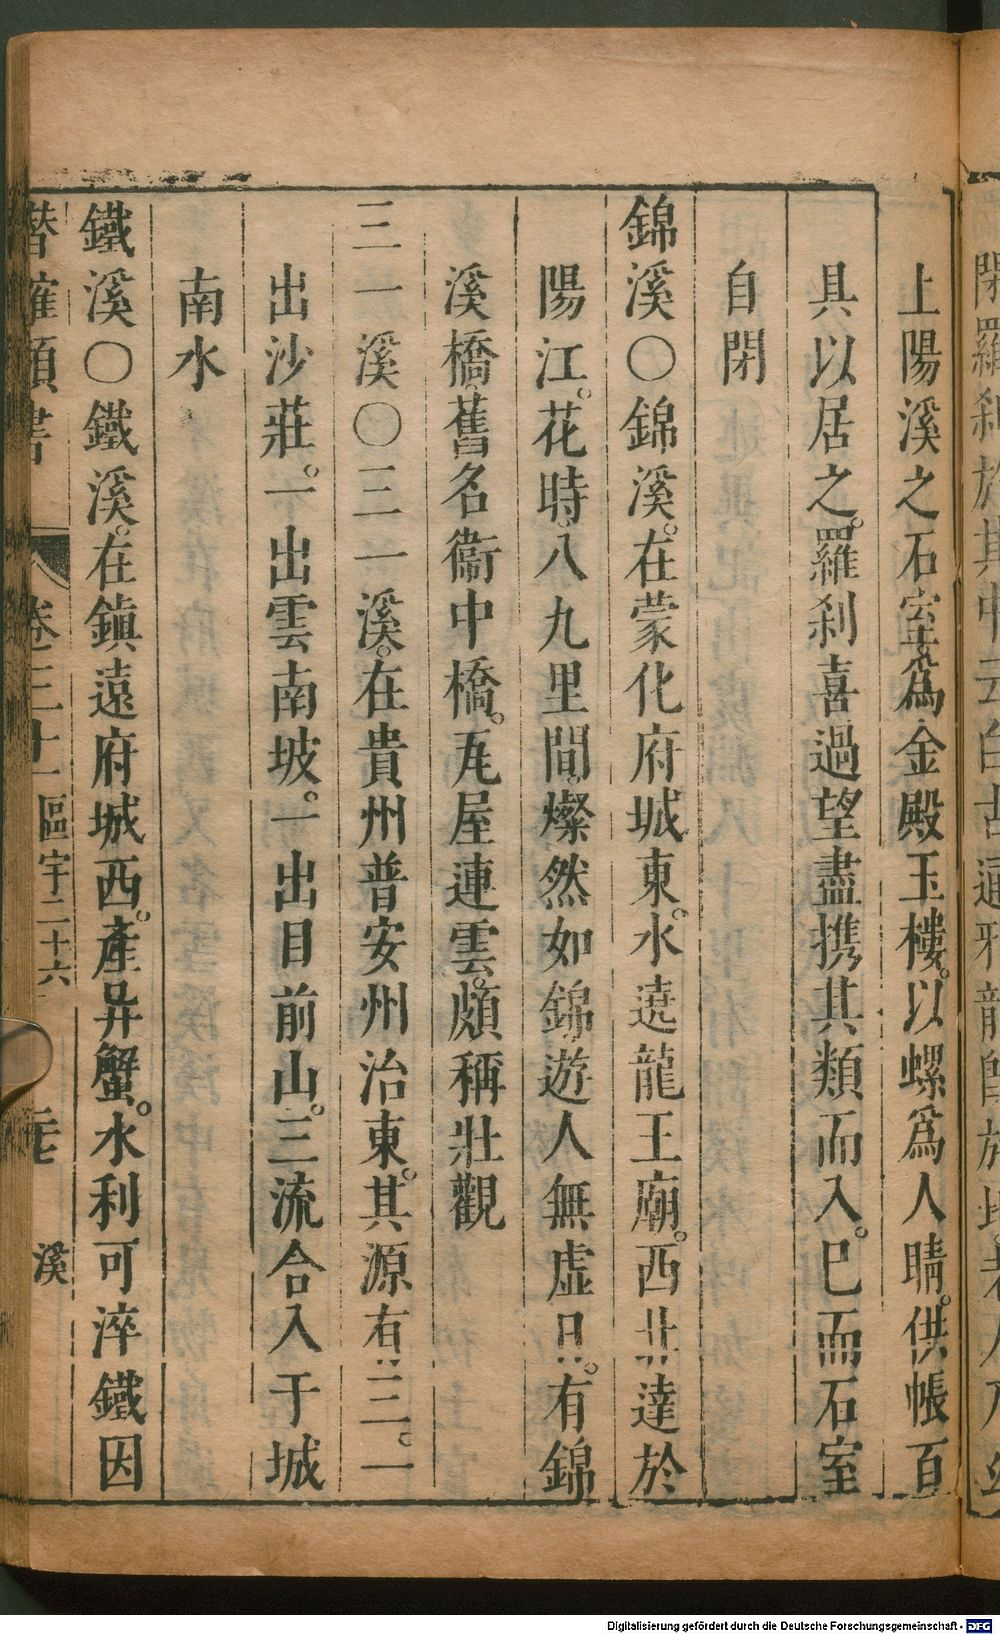 上陽溪之石室爲金殿玉樓以螺爲人睛供帳百
具以居之羅刹喜過望盡携其類而入已而石室
自閉
錦溪〇錦溪在蒙化府城東水遶龍王廟西北達於
陽江花時八九里間燦然如錦遊人無虛日有錦
溪橋舊名衞中橋瓦屋連雲頗稱壯觀
三一溪〇三一溪在貴州普安州治東其源有三一
出沙莊一出雲南坡一出目前山三流合入于城
南水
鐵溪〇鐵溪在鎮遠府城西產异蟹水利可淬鐵因
潛確類書 卷三十一 區宇二十六 溪
Digitalisierung gefördert durch die Deutsche Forschungsgemeinschaft - DFG